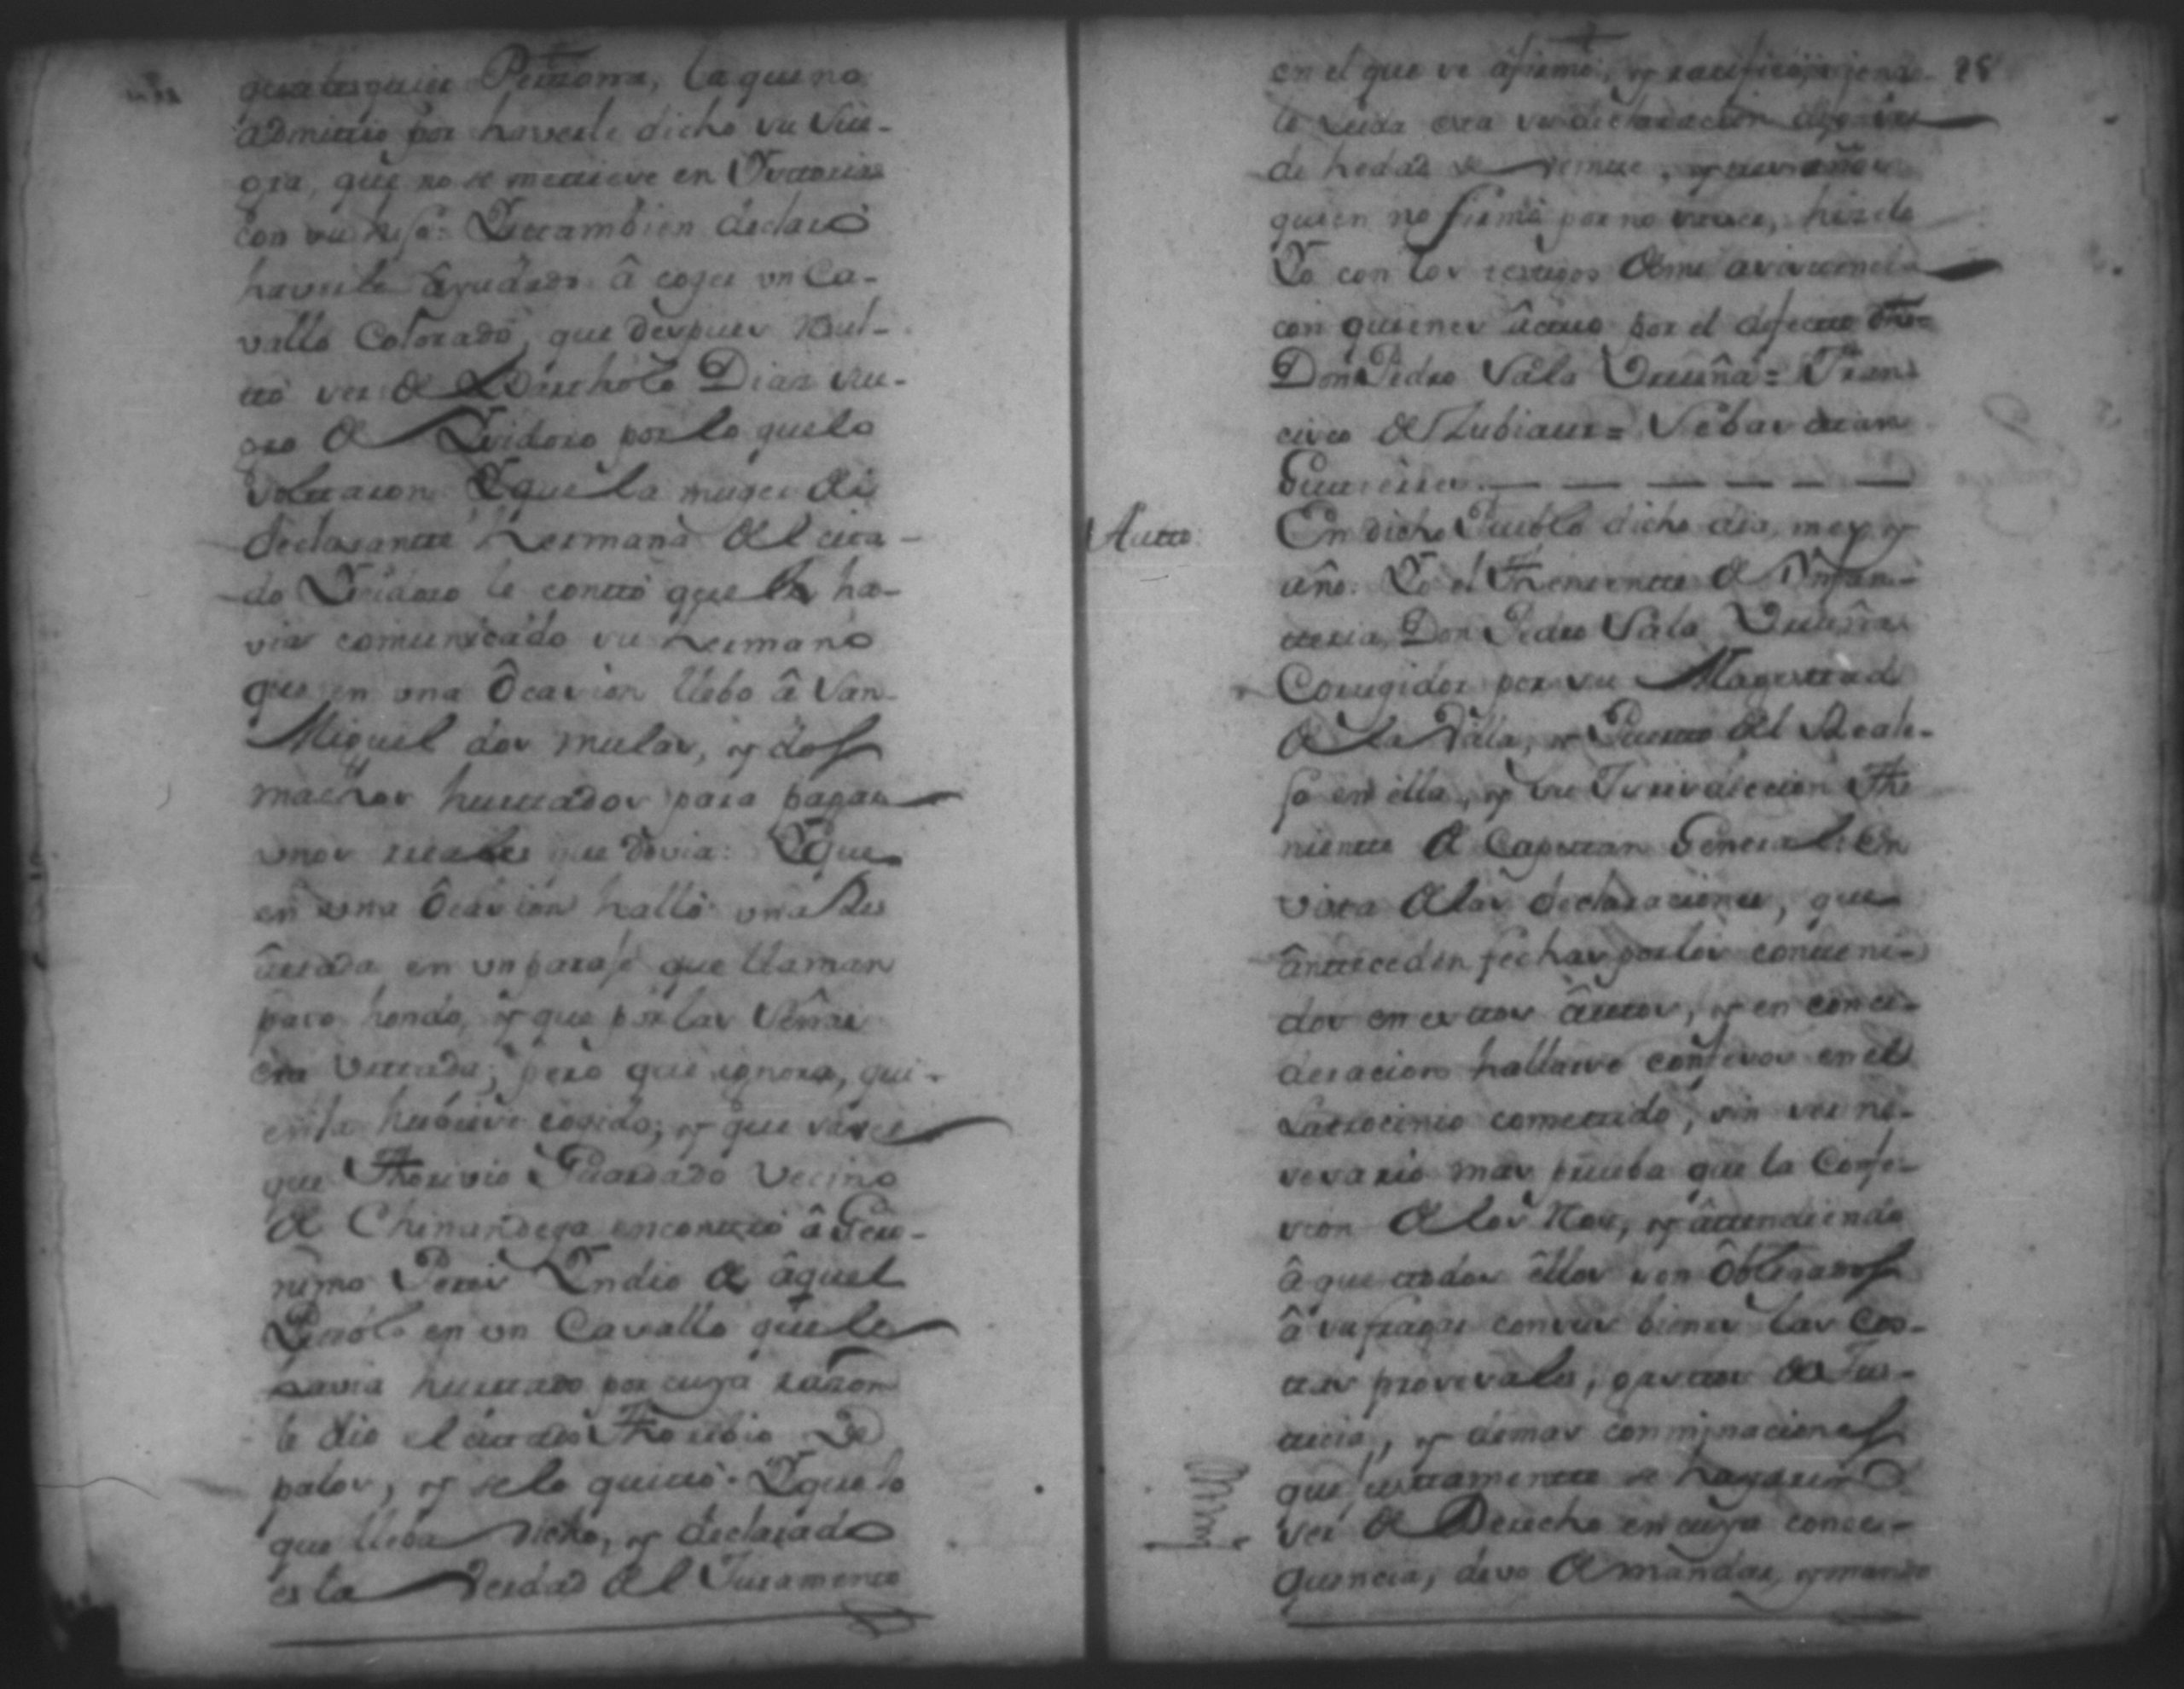 qualesquier Perzona, la que no
admittio por haverle dicho su sue-
gra, que no se mettiese en Ysttorias
con su hijo: Y ttambien declaró
haverle âyudado â coger un Ca-
vallo Colorado, que despues Resul-
ttó ser de Diaz sue-
gro de Ysidoro por lo que lo
solttaron. Y que la muger del
declarantte hermana del cita-
do Ysidoro le conttó que le ha-
via comunicado su hermano
que en una Ôcasion llebo â San
Miguel dos mulas, y dos
machos hurttados para pagar
unos reales que devia: Y que
en una Ôcasion halló una Res
en un paraje que llaman
paso hondo, y que por las Señas
era hurttada; pero que ignora, qui-
en la hubiese cogido; y que save
que Thorivio Guardado Vecino
de Chinandega enconttró â Gero-
nimo Perez Yndio de âquel
Pueblo en un Cavallo que le
havia hurttado por cuya razon
le dio el cittado Thoribio de
palos, y se lo quittó. Y que lo
que lleba dicho, y declarado
es la Verdad del Juramento
en el que se afirmó, y ratificó, siendo- 28
le leida esta su declaracion dijo ser
de hedad de veinte, y años
quien no firmó por no saver, hizelo
Yo con los testigos de mi asistencia
con quienes âctuo por el defectto dho=
Don Pedro Vala Vicuña= Fran-
cisco de Zubiaur= Sebasttian
Gutierres. — — — — — —
Autto: En dicho Pueblo dicho dia, mes y
año. Yo el Thenientte de Ynfan-
tteria, Don Pedro Vala Vicuña
Corregidor por su Magesttad
de la Villa, y Puertto del Reale-
jo en ella, y su Jurisdiccion The
nientte de Capittan General: En
vista de las declaraciones, que
ânteceden fechas por los conttení-
dos en esttos âuttos, y en conci-
deracion hallarse confesos en el
Latrocinio comettido, sin ser ne-
sesario mas prueba que la Confe-
sion de los Reos, y âttendiendo
â que ttodos êllos son Ôbligados
â sufragar con sus bienes las Cos-
ttas prosesales, gasttos de Jus-
ticia, y demas conminaciones
que justtamentte se hagan
ser de Derecho en cuya conse-
quencia, devo de mandar, y mando